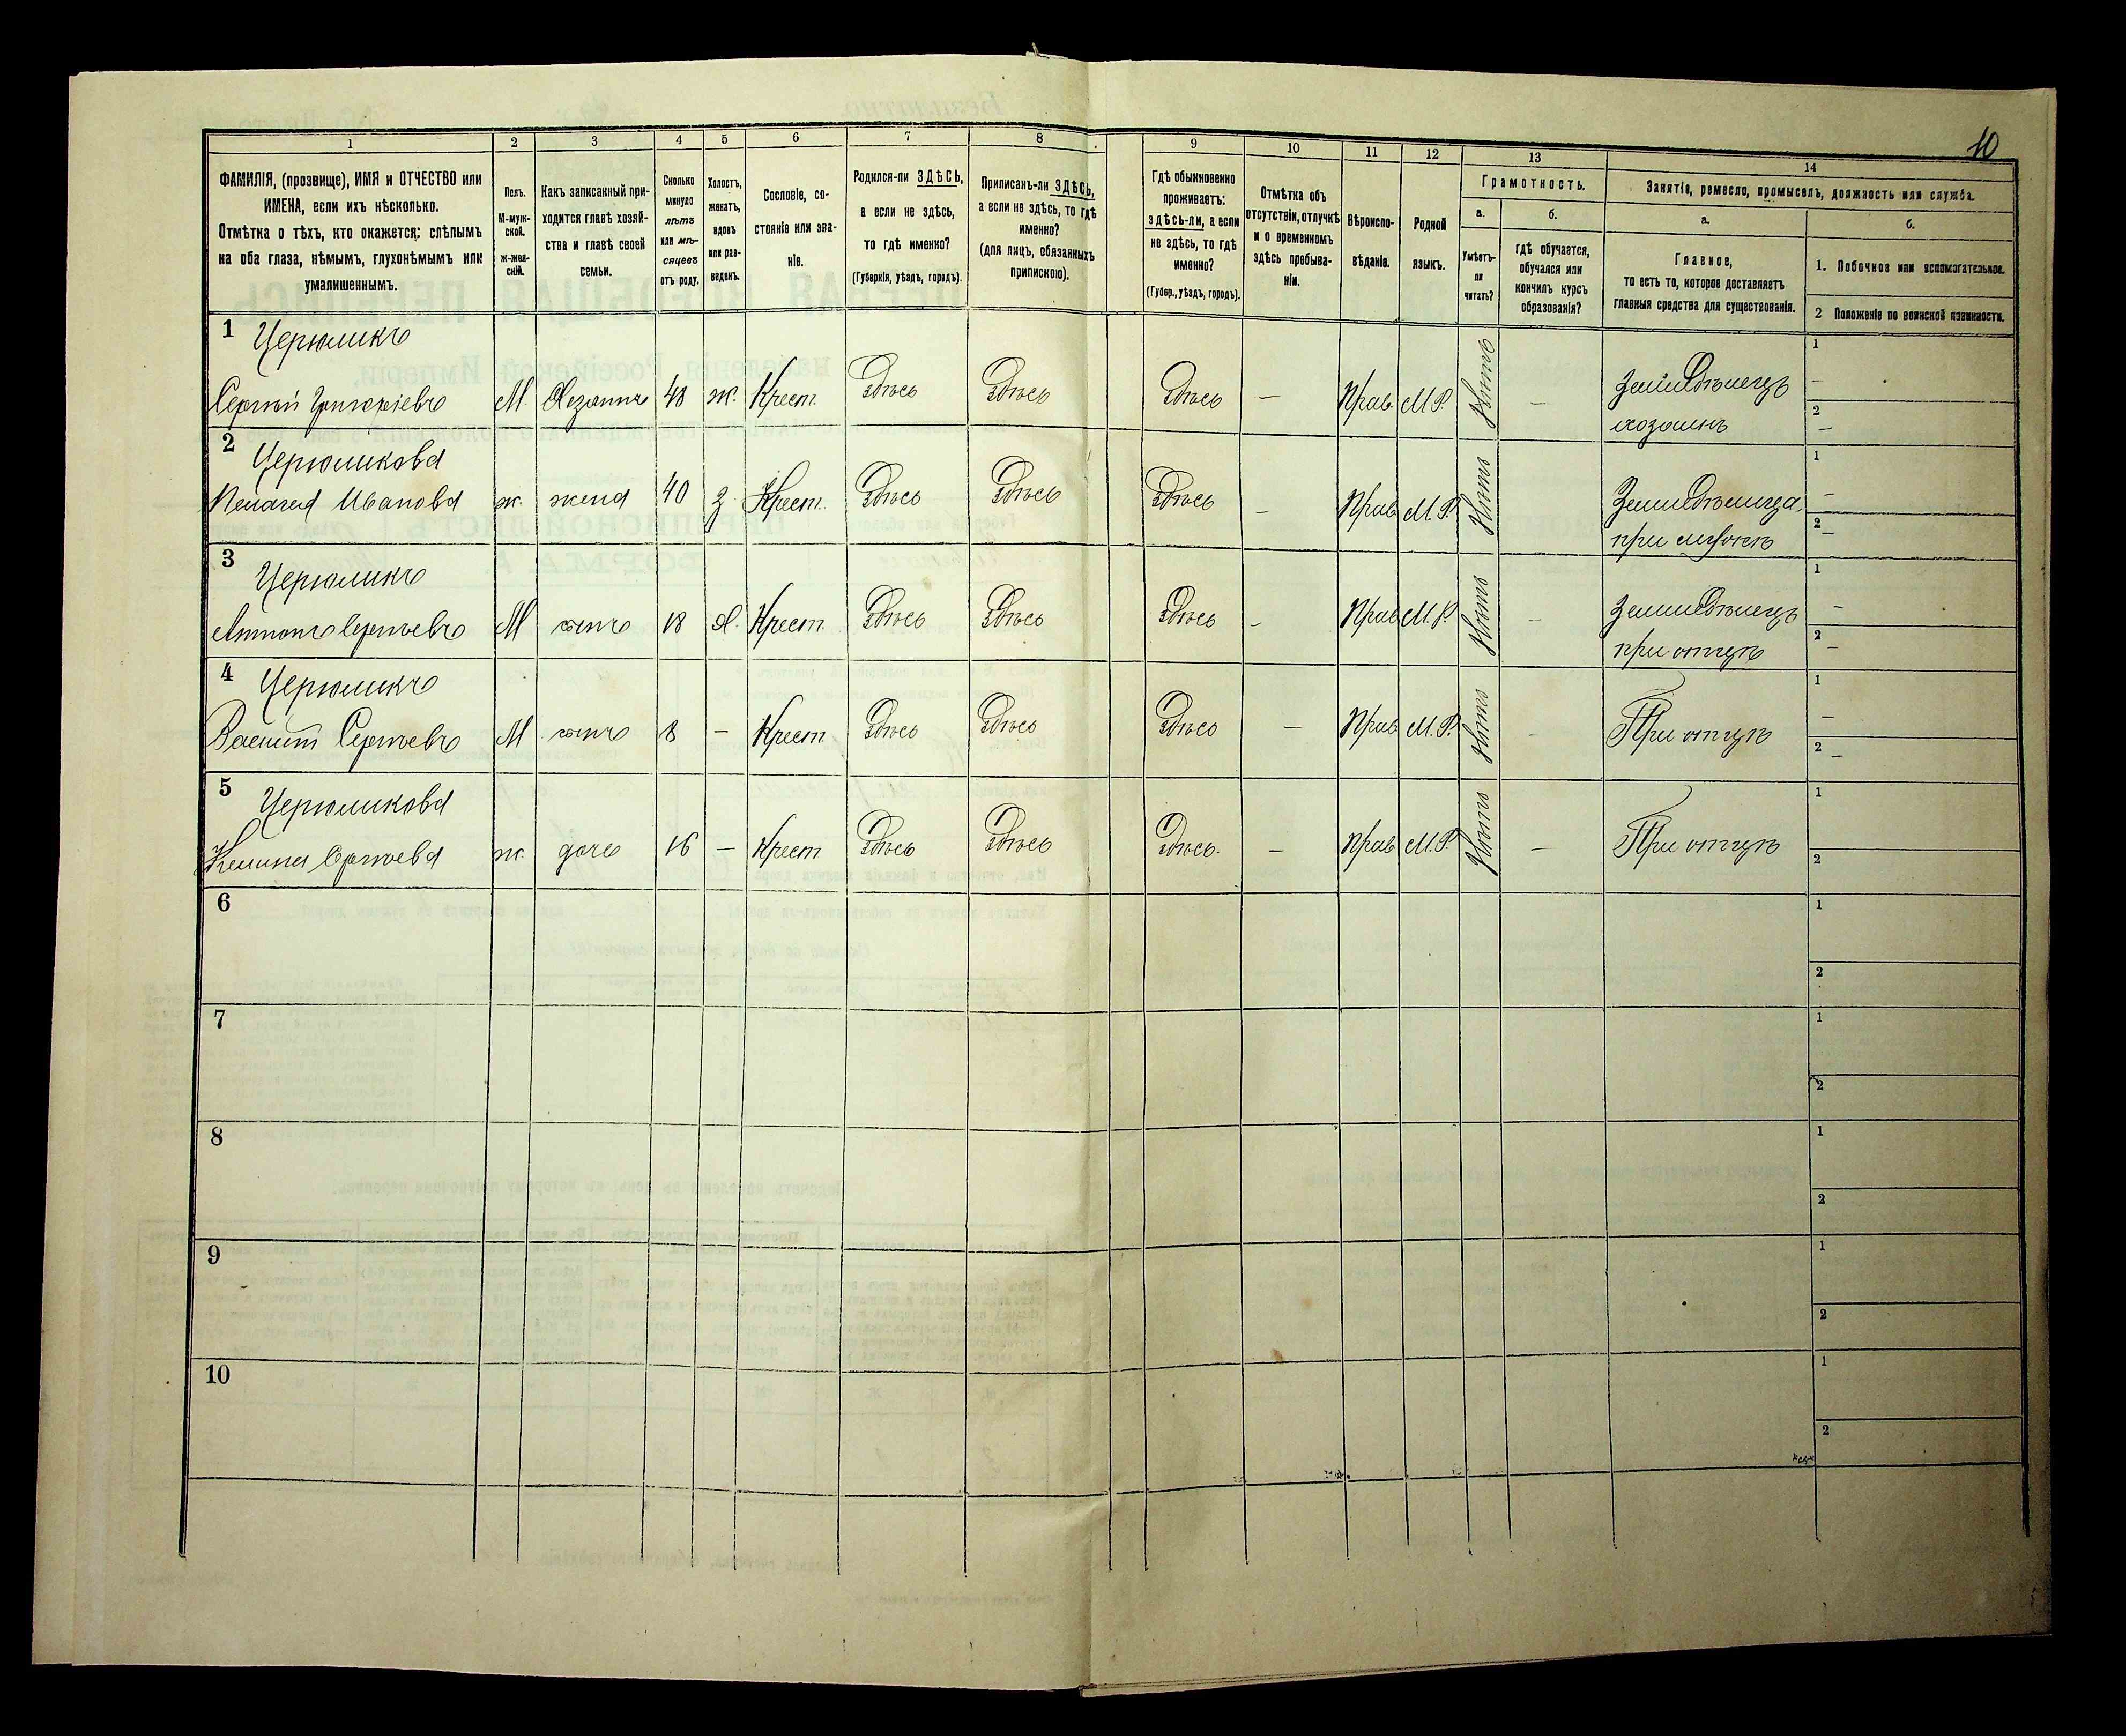 10
1 2 3 4 5 6 7 8 9 10 11 12 13 14
ФАМИЛІЯ, (прозвище), ИМЯ и ОТЧЕСТВО или
ИМЕНА, если ихъ нѣсколько.
Отмѣтка о тѣхъ, кто окажется: слѣпымъ
на оба глаза, нѣмымъ, глухонѣмымъ или
умалишеннымъ.
Полъ.
М-муж-
ской.
ж-жен-
скій.
Какъ записанный при-
ходится главѣ хозяй-
ства и главѣ своей
семьи.
Сколько
минуло
лѣтъ
или мѣ-
сяцевъ
отъ роду.
Холостъ,
женатъ,
вдовъ
или раз-
веденъ.
Сословіе, со-
стояніе или зва-
ніе.
Родился-ли ЗДѢСЬ,
а если не здѣсь,
то гдѣ именно?
(Губернія, уѣздъ, городъ).
Приписанъ-ли ЗДѢСЬ,
а если не здѣсь, то гдѣ
именно?
(для лицъ, обязанныхъ
припискою).
Гдѣ обыкновенно
проживаетъ:
здѣсь-ли, а если
не здѣсь, то гдѣ
именно?
(Губер., уѣздъ, городъ).
Отмѣтка объ
отсутствіи, отлучкѣ
и о временномъ
здѣсь пребыва-
ніи.
Вѣроиспо-
вѣданіе.
Родной
языкъ.
Грамотность.
а. б.
Умѣетъ-
ли
читать?
гдѣ обучается,
обучался или
кончилъ курсъ
образованія?
Занятіе, ремесло, промыселъ, должность или служба.
а. б.
Главное,
то есть то, которое доставляетъ
главныя средства для существованія.
1. Побочное или вспомогательное.
2 Положеніе по воинской повинности.
1 Церюликъ
Сергѣй Григоріевъ М. Хозяинъ 48 ж. Крест. Здѣсь Здѣсь Здѣсь — Прав. М.Р. Нѣтъ — Земледѣлецъ 1 —
хозяинъ 2 —
2 Церюликова
Пелагея Иванова ж. жена 40 з. Крест. Здѣсь Здѣсь Здѣсь — Прав М.Р. Нѣтъ Земледѣлица 1 —
при мужѣ 2 —
3 Церюликъ
Антонъ Сергѣевъ М сынъ 18 х. Крест Здѣсь Здѣсь Здѣсь — Прав М.Р. Нѣтъ — Земледѣлецъ 1 —
при отцѣ 2 —
4 Церюликъ
Василій Сергѣевъ М сынъ 8 — Крест Здѣсь Здѣсь Здѣсь — Прав М.Р. Нѣтъ — При отцѣ 1 —
2 —
5 Церюликова
Сергѣева ж. дочь 16 — Крест Здѣсь Здѣсь Здѣсь. — Прав М.Р. Нѣтъ — При отцѣ 1
2
6 1
2
7 1
2
8 1
2
9 1
2
10 1
2